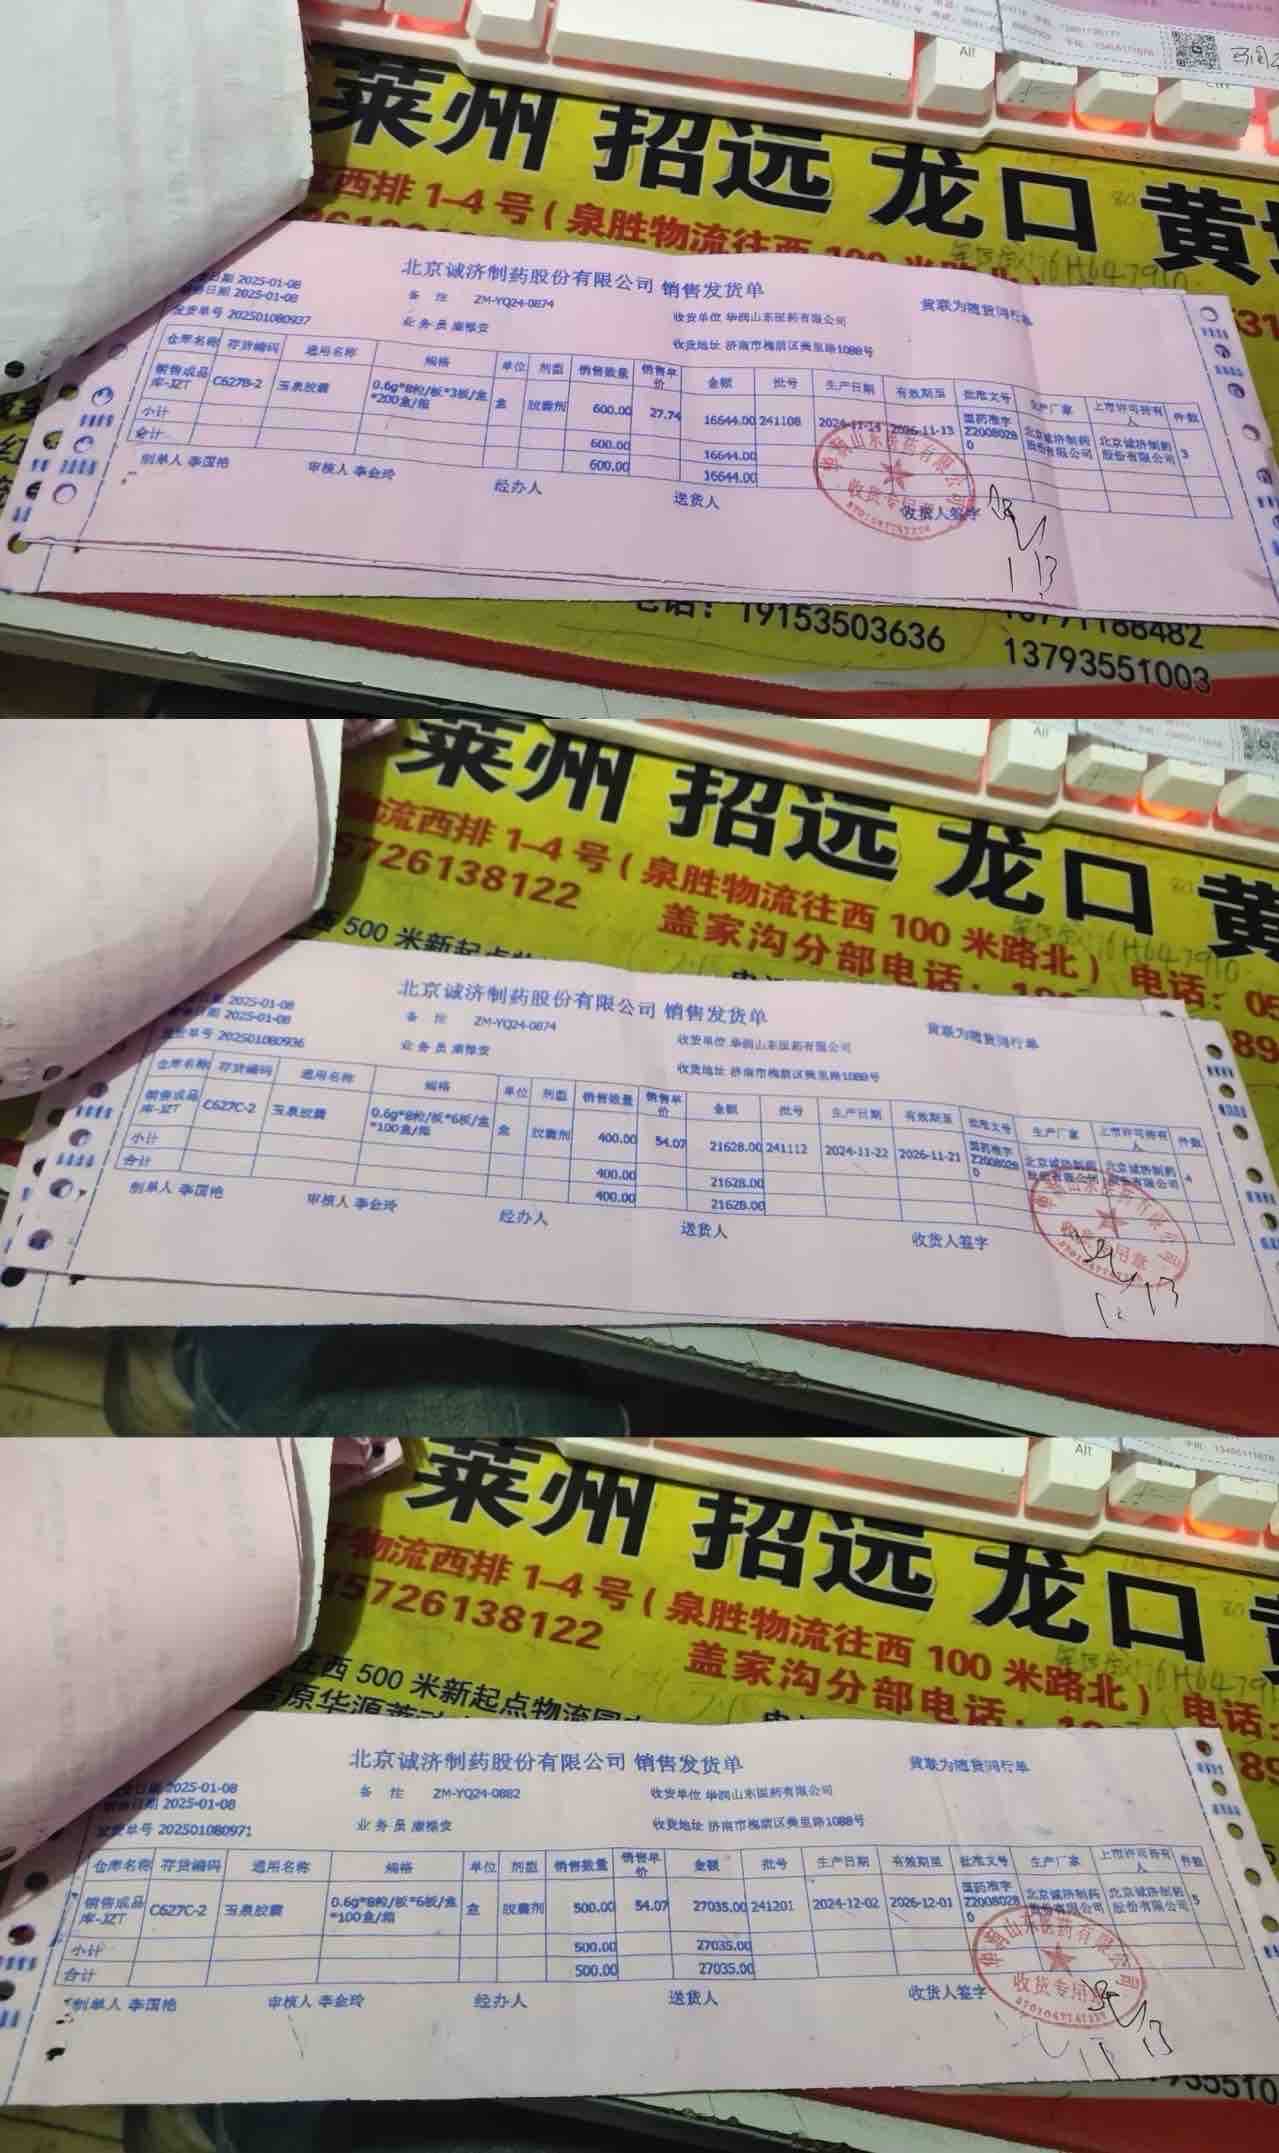 Alt
莱州 招远 龙口 黄
西排 1-4 号（泉胜物流往西 100 米路北
北京诚济制药股份有限公司 销售发货单
日期 2025-01-08
日期 2025-01-08
备 注 ZM-YQ24-0874
收货单位 华润山东医药有限公司
货联为随货同行单
发货单号 202501080937
业务员 康根安
收货地址 济南市槐荫区美里路1088号
仓库名称 存货编码 通用名称 规格 单位 剂型 销售数量 销售单价 金额 批号 生产日期 有效期至 批准文号 生产厂家 上市许可持有人 件数
销售成品库-JZT C627B-2 玉泉胶囊 0.6g*8粒/板*3板/盒*200盒/箱 盒 胶囊剂 600.00 27.74 16644.00 241108 2024-11-14 2026-11-13 国药准字Z20080280 北京诚济制药股份有限公司 北京诚济制药股份有限公司 3
小计 600.00 16644.00
合计 600.00 16644.00
制单人 李国艳 审核人 李金玲 经办人 送货人 收货人签字
山东医药有限公司
收货专用章
1.13
电话：19153503636
13793551003
Alt
莱州 招远 龙口 黄
物流西排 1-4 号（泉胜物流往西 100 米路北）电话：05
5726138122 盖家沟分部电话：
西 500 米新起点
北京诚济制药股份有限公司 销售发货单
2025-01-08
日期 2025-01-08
备 注 ZM-YQ24-0874
收货单位 华润山东医药有限公司
货联为随货同行单
发货单号 202501080936
业务员 康根安
收货地址 济南市槐荫区美里路1088号
仓库名称 存货编码 通用名称 规格 单位 剂型 销售数量 销售单价 金额 批号 生产日期 有效期至 批准文号 生产厂家 上市许可持有人 件数
销售成品库-JZT C627C-2 玉泉胶囊 0.6g*8粒/板*6板/盒*100盒/箱 盒 胶囊剂 400.00 54.07 21628.00 241112 2024-11-22 2026-11-21 国药准字Z20080280 北京诚济制药股份有限公司 北京诚济制药股份有限公司 4
小计 400.00 21628.00
合计 400.00 21628.00
制单人 李国艳 审核人 李金玲 经办人 送货人 收货人签字
山东医药有限公司
收货专用章
1.13
Alt
莱州 招远 龙口
物流西排 1-4 号（泉胜物流往西 100 米路北）电话：
5726138122 盖家沟分部电话：
往西 500 米新起点物流园
北京诚济制药股份有限公司 销售发货单
货联为随货同行单
日期 2025-01-08
日期 2025-01-08
备 注 ZM-YQ24-0882
收货单位 华润山东医药有限公司
发货单号 202501080971
业务员 康根安
收货地址 济南市槐荫区美里路1088号
仓库名称 存货编码 通用名称 规格 单位 剂型 销售数量 销售单价 金额 批号 生产日期 有效期至 批准文号 生产厂家 上市许可持有人 件数
销售成品库-JZT C627C-2 玉泉胶囊 0.6g*8粒/板*6板/盒*100盒/箱 盒 胶囊剂 500.00 54.07 27035.00 241201 2024-12-02 2026-12-01 国药准字Z20080280 北京诚济制药股份有限公司 北京诚济制药股份有限公司 5
小计 500.00 27035.00
合计 500.00 27035.00
制单人 李国艳 审核人 李金玲 经办人 送货人 收货人签字
山东医药有限公司
收货专用章